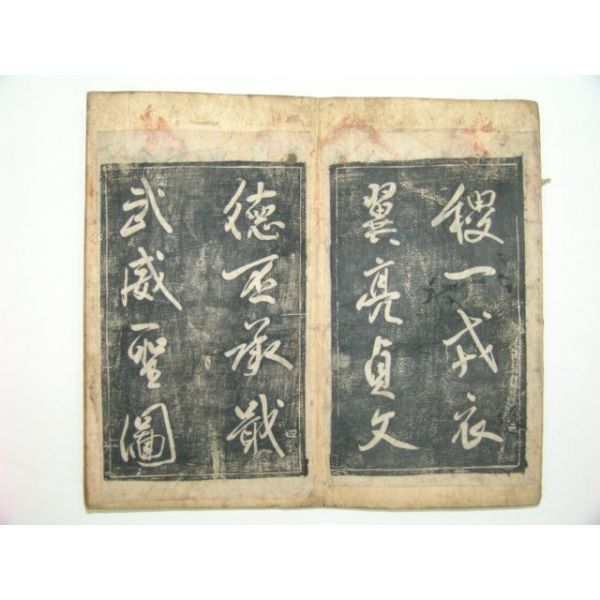 稷一戎衣
翼亮貞文
德丕承戢
武威聖圖
四